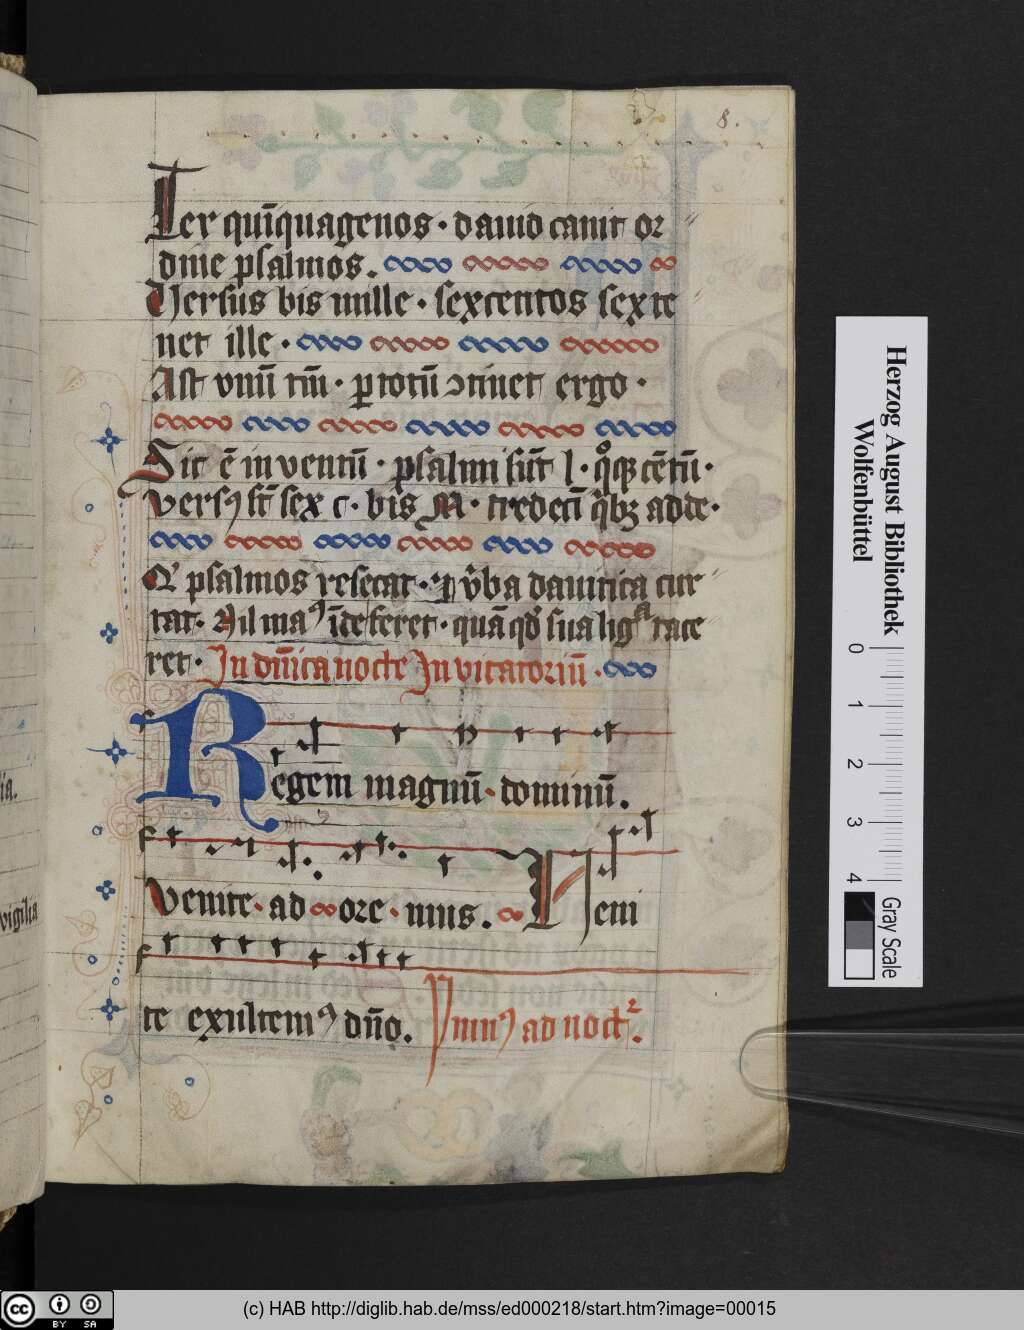 8.
Ter quīquagenos · dauid canit or
dine psalmos.
Versus bis mille · sexcentos sexte
net ille ·
Ast vnū tm̄ · p totū ɔtinet ergo ·
Sic ē inventū · psalmi sūt l · qͦqꝫ cētū ·
versꝰ st̄ sex c · bis M · tredecī qͥbꝫ adde ·
Qͥ psalmos resecat · qͥ v̄ba dauitica cur
tat · Nil maꝰ īde feret · quā qd̓ sua ligᷓ tace
ret · In dn̄ica nocte Invitatoriū ·
Regem magnū · dominū.
Venite · ad ore · mus. Veni
te exultemꝰ dn̄o. Primꝰ ad noctᷣ.
ia.
vigilia
Herzog August Bibliothek
Wolfenbüttel
0 1 2 3 4
Gray Scale
cc BY SA
(c) HAB http://diglib.hab.de/mss/ed000218/start.htm?image=00015